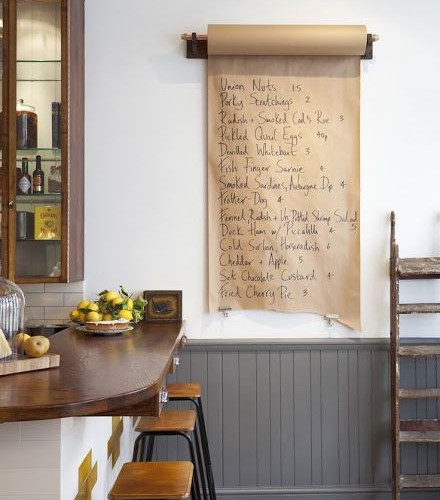 Union Nuts 1.5
Porky Scratchings 2
Radish + Smoked Cod's Roe 3
Pickled Quail Eggs 40p
Devilled Whitebait 3
Fish Finger Sarnie 4
Smoked Sardines, Aubergine Dip 4
Trotter-Dog 4
Fennel, Radish + Un-Potted Shrimp Salad 5
Duck Ham w/ Piccalilli 4
Cold Sirloin, Horseradish 6
Cheddar + Apple 5
Salt Chocolate Custard 4
Fried Cherry Pie 3